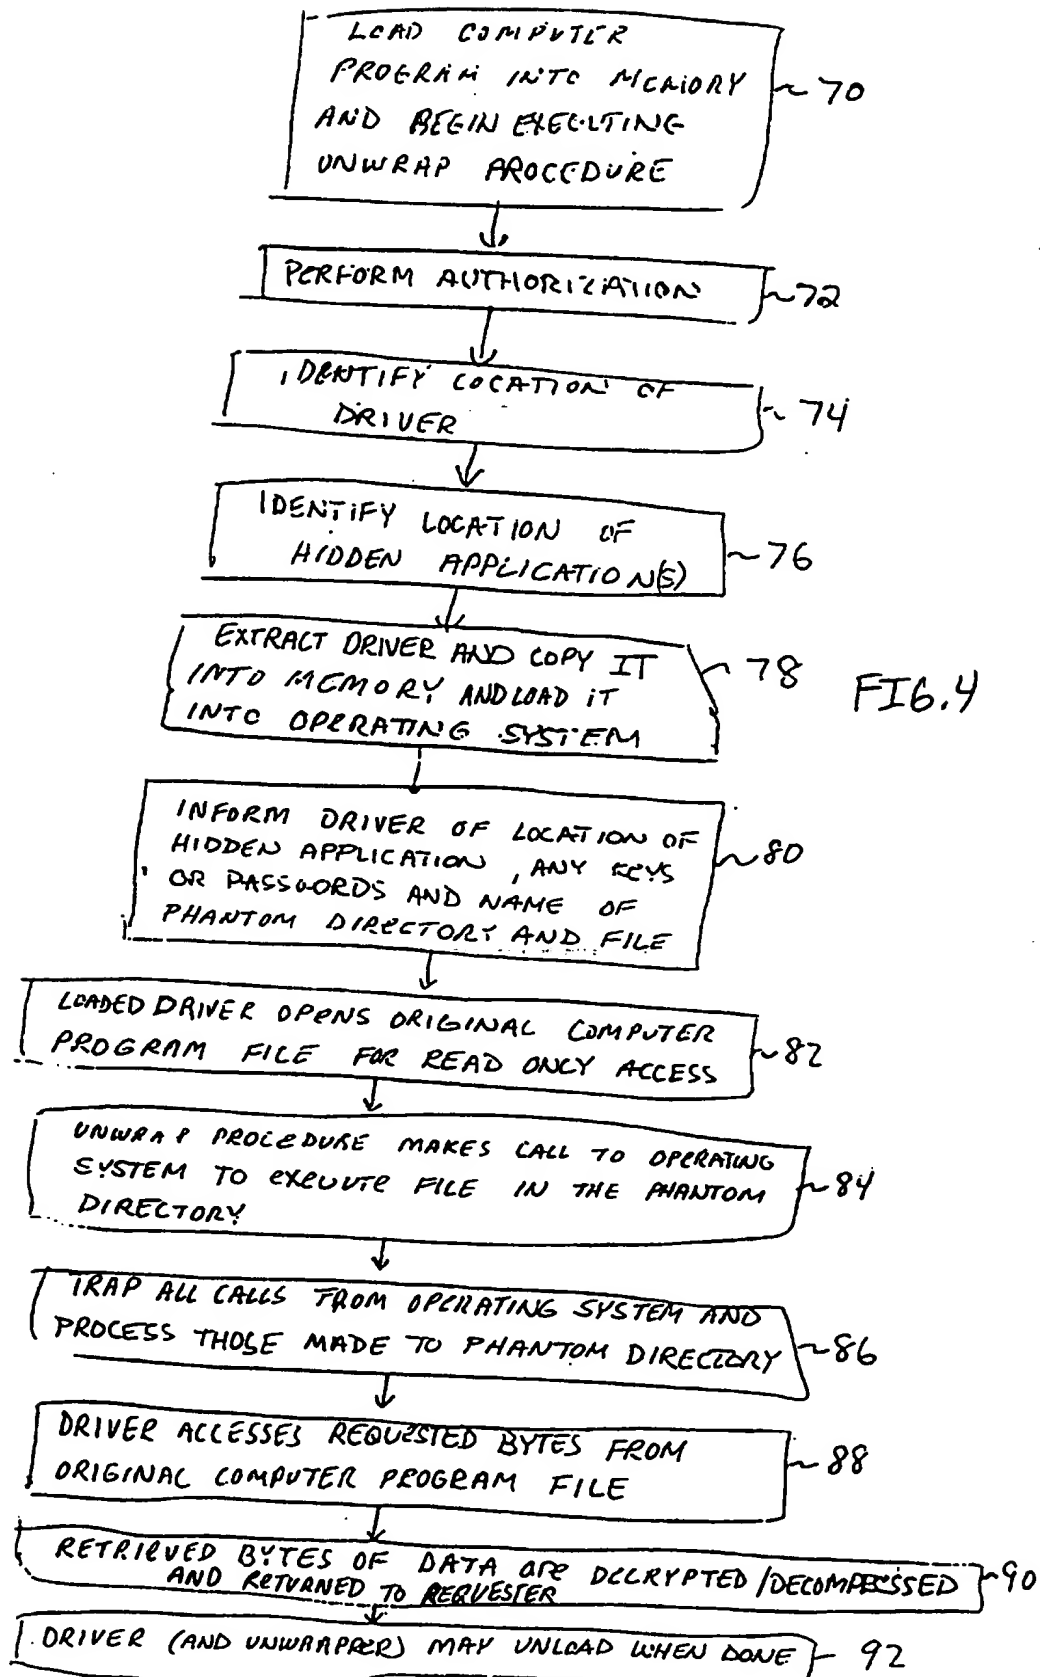 LOAD COMPUTER
PROGRAM INTO MEMORY
AND BEGIN EXECUTING
UNWRAP PROCEDURE
~ 70
PERFORM AUTHORIZATION
~72
IDENTIFY LOCATION OF
DRIVER
~ 74
IDENTIFY LOCATION OF
HIDDEN APPLICATION(S)
~76
EXTRACT DRIVER AND COPY IT
INTO MEMORY AND LOAD IT
INTO OPERATING SYSTEM
~78
FIG. 4
INFORM DRIVER OF LOCATION OF
HIDDEN APPLICATION, ANY KEYS
OR PASSWORDS AND NAME OF
PHANTOM DIRECTORY AND FILE
~80
LOADED DRIVER OPENS ORIGINAL COMPUTER
PROGRAM FILE FOR READ ONLY ACCESS
~82
UNWRAP PROCEDURE MAKES CALL TO OPERATING
SYSTEM TO EXECUTE FILE IN THE PHANTOM
DIRECTORY
~84
TRAP ALL CALLS FROM OPERATING SYSTEM AND
PROCESS THOSE MADE TO PHANTOM DIRECTORY
~86
DRIVER ACCESSES REQUESTED BYTES FROM
ORIGINAL COMPUTER PROGRAM FILE
~88
RETRIEVED BYTES OF DATA ARE DECRYPTED/DECOMPRESSED
AND RETURNED TO REQUESTER
~90
DRIVER (AND UNWRAPPER) MAY UNLOAD WHEN DONE
92